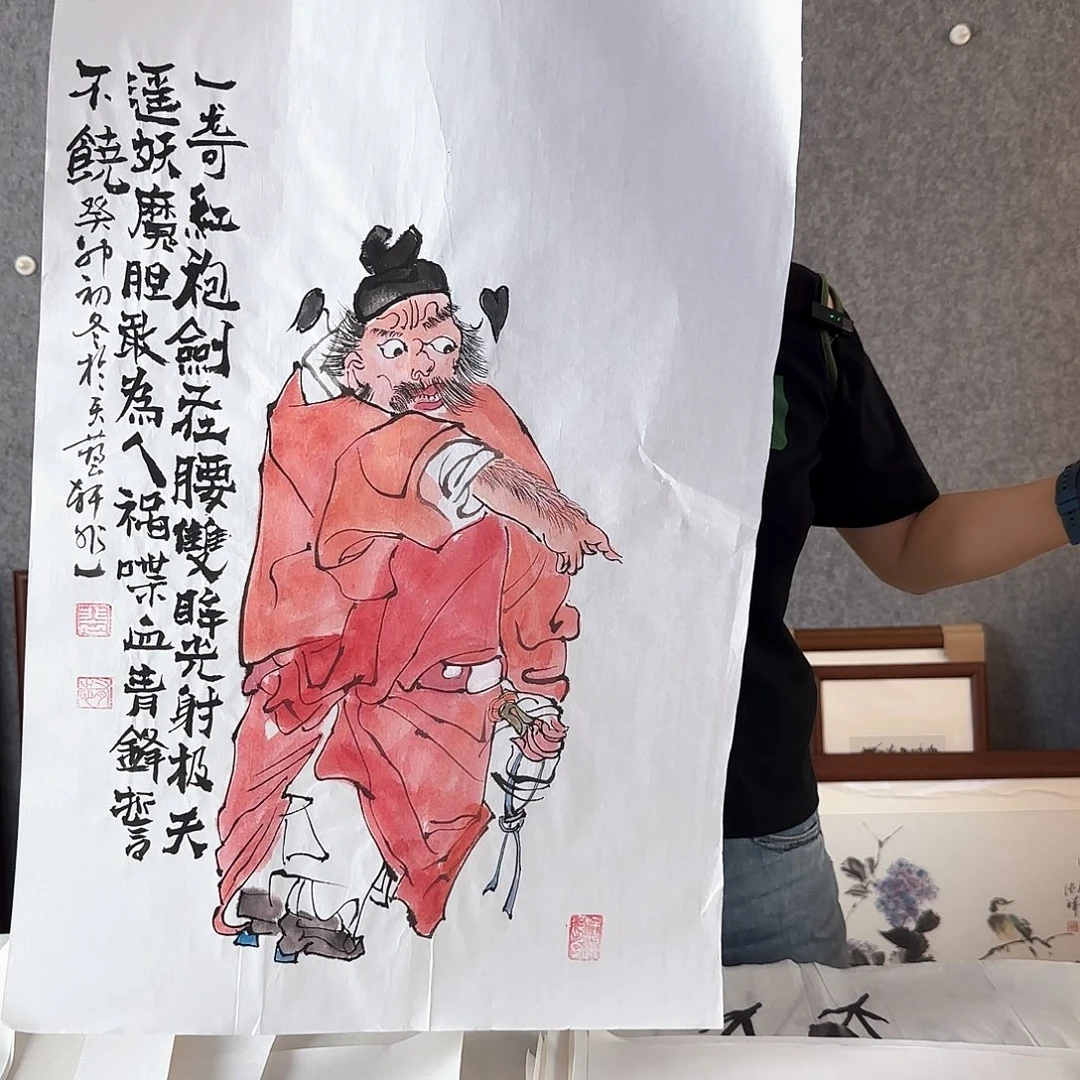 一紅袍劍在腰雙眸光射极天
遥妖魔胆敢為人祸喋血青鋒誓
不饒癸卯初冬於藝軒